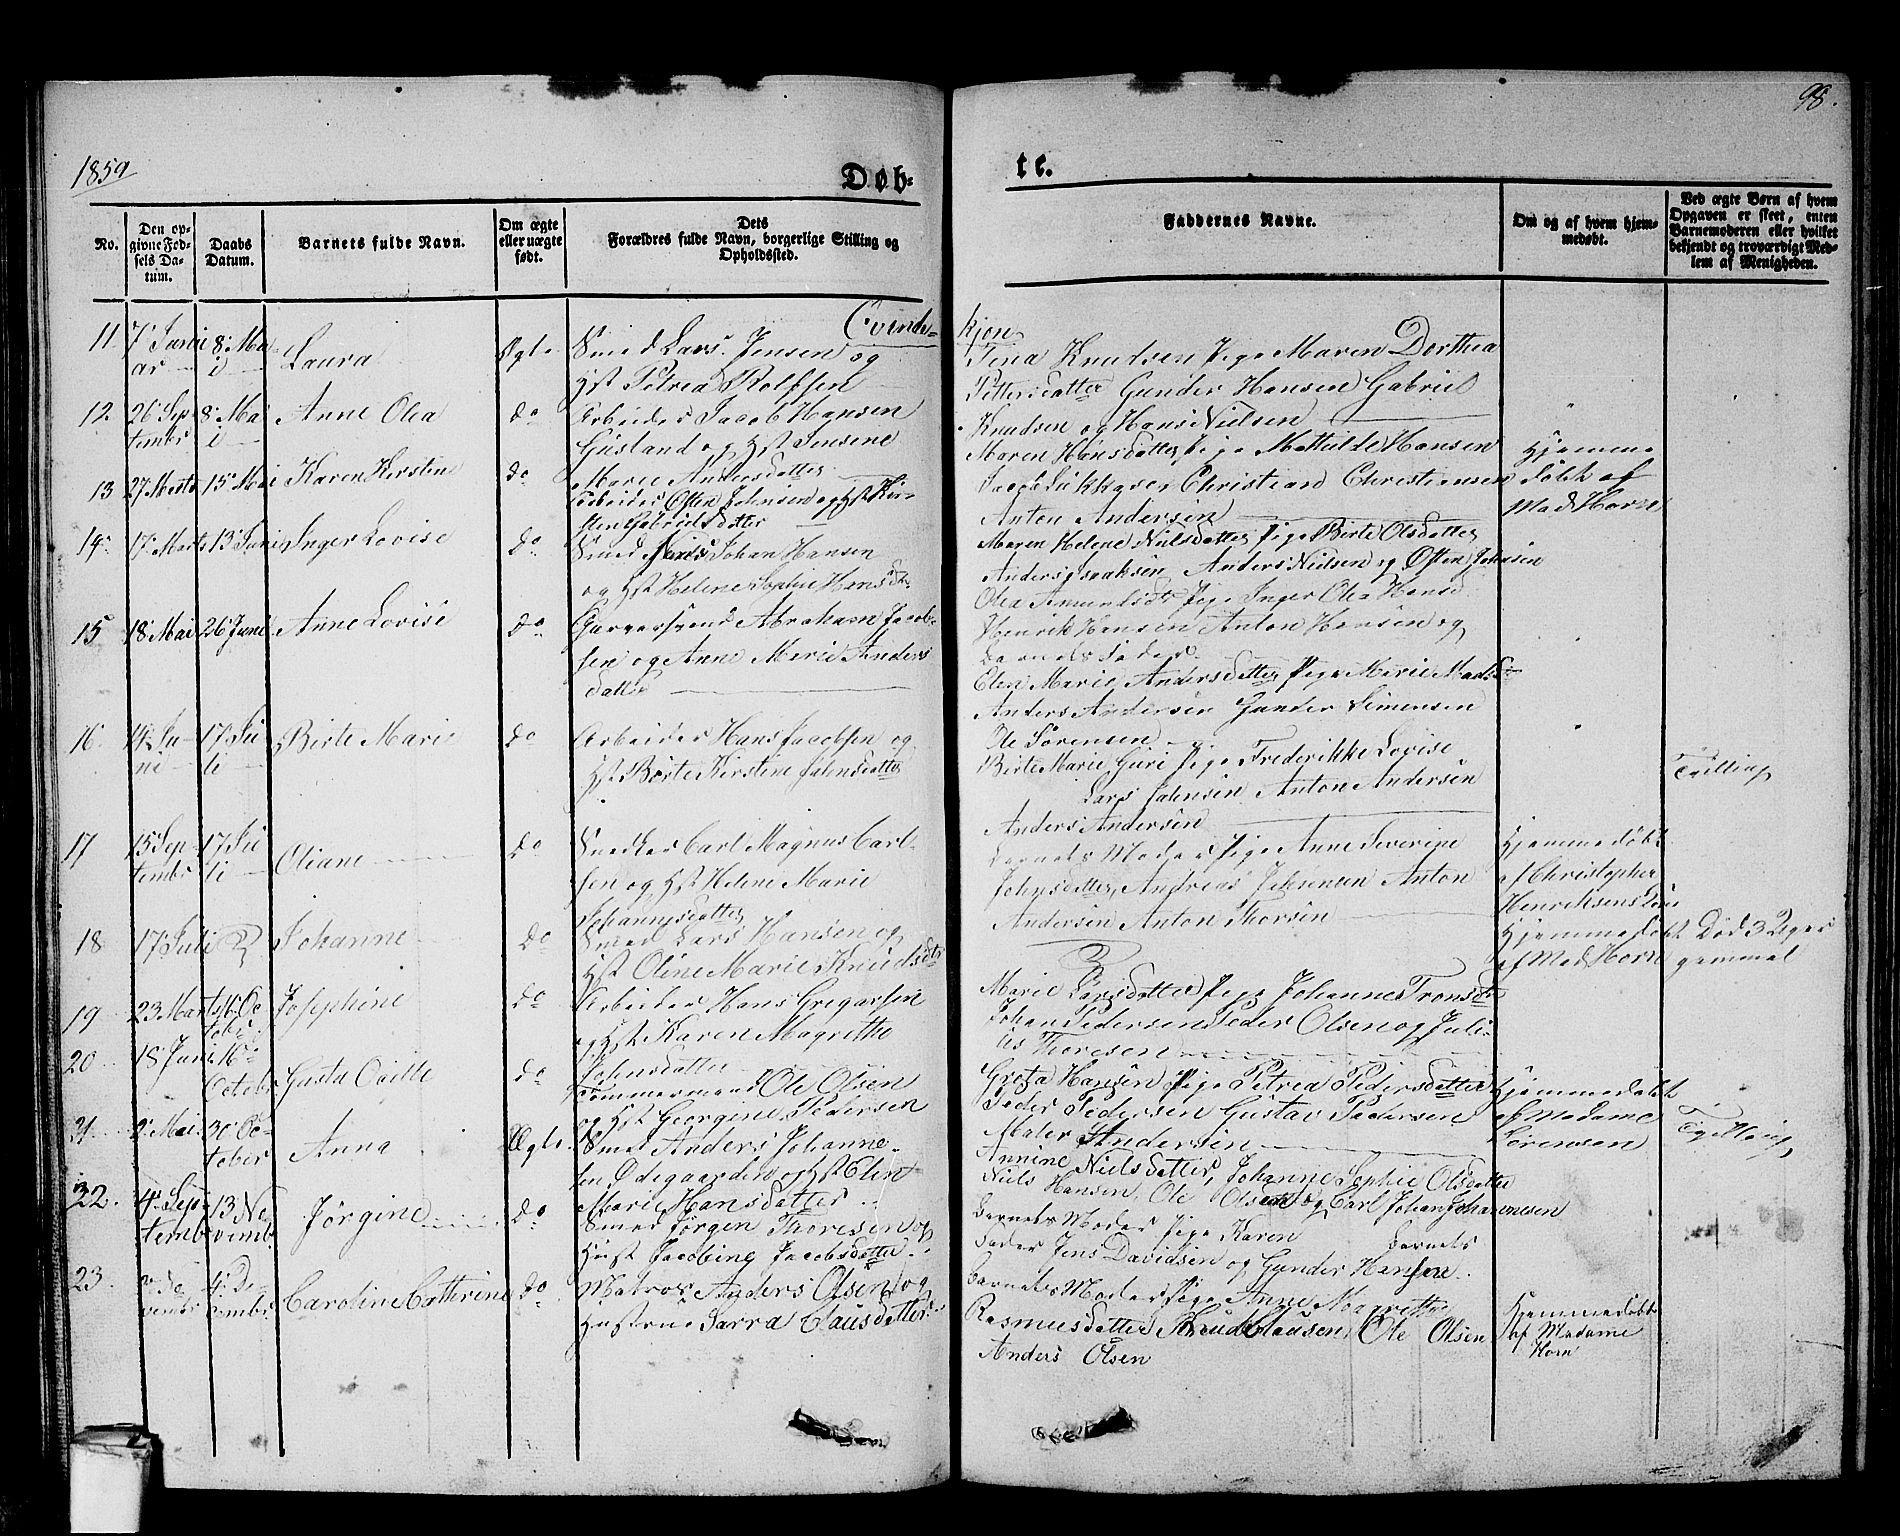 1859
98.
Døb-
te.
No.
Den op-
givne Fød-
sels Da-
tum.
Daabs
Datum.
Barnets fulde Navn.
Om ægte
eller uægte
født.
Dets
Forældres fulde Navn, borgerlige Stilling og
Opholdssted.
Faddernes Navne.
Om og af hvem hjem-
medøbt.
Ved ægte Børn af hvem
Opgaven er skeet, enten
Barnemoderen eller hvilket
bekjendt og troværdigt Med-
lem af Menigheden.
Qvinde-
kjøn
11. 7de Janu
ar
8de Ma
i
Laura
Ægte
Smed Lars Jensen og
Hst Petrea Rolfsen
Tina Knudsen Pige Maren Dorthea
Pettersdatter Gunder Hansen Gabriel
Knudsen og Hans Nielsen
12. 26 Sep
tembr
8de Ma
i
Anne Olea
do
Arbeider Jacob Hansen
Gusland og Hst Jensene
Marie Andersdatter
Maren Hansdatter Pige Mathilde Hansen
Christian Christiansen
Anton Andersen
Hjemme
døbt af
Mad Horn
13 27 Marts 15 Mai Karen Kirstine
do
Arbeider Østen Johnsen og Hst Kir-
sten Gabrielsdatter
Maren Helene Nilsdatter Pige Birte Olsdatter
Anders Isaksen Anders Nielsen og Østen Johnsen
14 17 Marts 13 Juni Inger Lovise
do
Smed Johan Hansen
og Hst Helene Sophie Hansdtr
Olea Amundsdtr Pige Inger Olea Hansd
Henrik Hansen Anton Hansen og
Barnets Fader
15 18 Mai 26 June Anne Lovise
do
Garversvend Abraham Jacob-
sen og Anne Marie Anders
datter
Elen Marie Andersdatter Pige Marie Madsd
Anders Andersen Gunder Simensen
Ole Sørensen
16. 14 Ju-
ni
17 Ju
li
Birte Marie
do
Arbeider Hans Jacobsen og
Hst Børte Kirstine Johnsdatter
Birte Marie Guri Pige Frederikke Lovise
Lars Johnsen Anton Andersen
Anders Andersen
Tvilling
17 15 Sep-
tembr
17 Ju
li
Oliane
do
Snedker Carl Magnus Carl-
sen og Hst Helene Marie
Johannesdatter
Barnets Moder Pige Anne Severine
Johnsdatter Andreas Johnsen Anton
Andersen Anton Thorsen
Hjemmedøbt
af Christopher
Henriksen
18 17 Juli
Johanne
do
Smed Lars Hansen og
Hst Oline Marie Knudsdtr
Hjemmedøbt
af Mad Horn
Død 3 Uger
gammel
19 23 Marts 16 Oc
tober
Josephine
do
Arbeider Hans Gregersen
og Hst Karen Magrethe
Johnsdatter
Marie Larsdatter Pige Johanne Tronsd
Johan Pedersen Peder Olsen og Juli-
us Thoresen
20 18 Juni 16
October
Gusta
do
Tømmermand Ole Olsen
og Hst Georgine Pedersen
Greta Hansen Pige Petrea Pedersdatter
Peder Pedersen Gustav Pedersen
Maler Andersen
Hjemmedøbt
af Madame
Sørensen
Tvilling
21. 2 Mai 30 Oc-
tober
Anna
Ægte
Smed Anders Johanne-
sen Ødegaarden og Hst Elen
Marie Hansdatter
Annine Nielsdatter, Johanne Sophie Olsdatter
Niels Hansen, Ole Olsen og Carl Johan Johannesen
22. 4 Sep-
temb
13 No
vemb.
Jørgine
do
Smed Jørgen Thoresen og
Hust Jacobine Jacobsdatter
Barnets Moder Pige Karen Barnets
Fader Jens Davidsen og Gunder Hansen
23. vembr
4de De-
cembr.
Caroline Cathrine
do
Matros Anders Olsen og
Hustrue Sarra Clausdatter
Barnets Moder Pige Anne Magrethe
Rasmusdatter Knud Clausen, Ole Olsen
Anders Olsen
Hjemmedøbt
af Madame
Horn